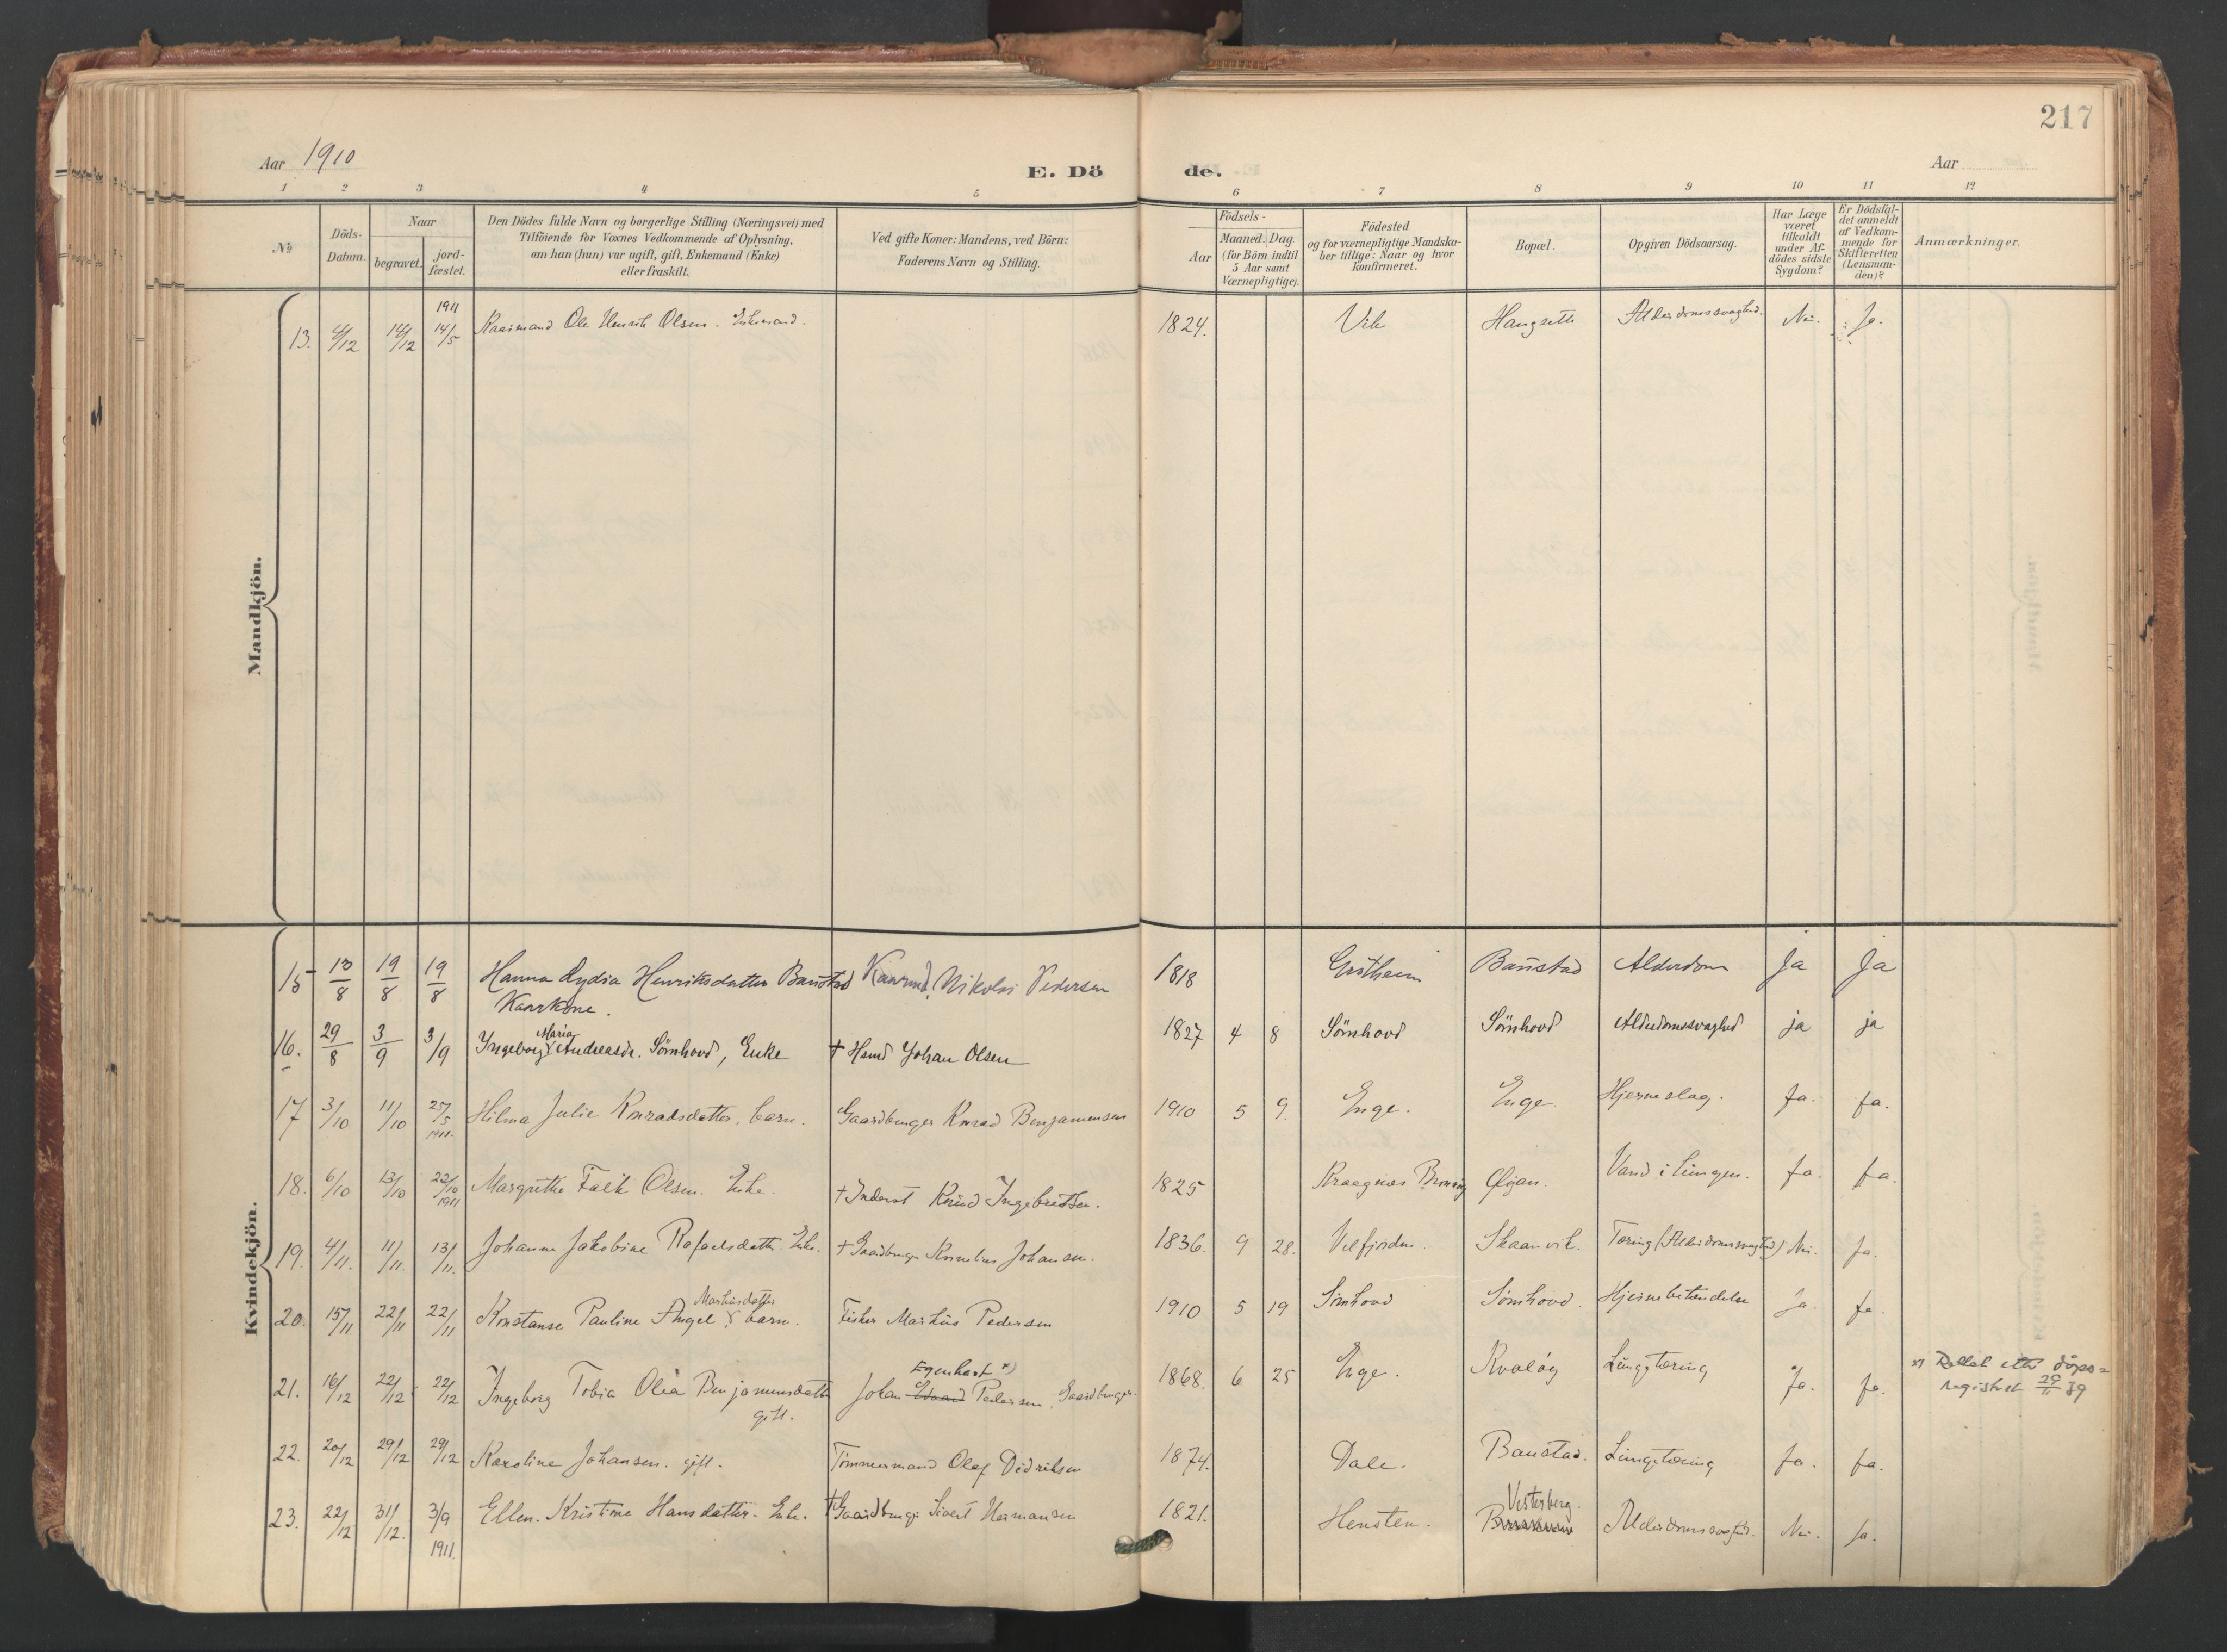 217
Aar 1910
E. Döde.
Aar
1 2 3 4 5 6 7 8 9 10 11 12
No
Döds-Datum.
Naar
begravet.
jord-fæstet.
Den Dödes fulde Navn og borgerlige Stilling (Næringsvei) med
Tilföiende for Voxnes Vedkommende af Oplysning,
om han (hun) var ugift, gift, Enkemand (Enke)
eller fraskilt.
Ved gifte Koner: Mandens, ved Börn:
Faderens Navn og Stilling.
Födsels-
Aar
Maaned. Dag
(for Börn indtil
5 Aar samt
Værnepligtige).
Födested
og for værnepligtige Mandska-
ber tillige: Naar og hvor
konfirmeret.
Bopæl.
Opgiven Dödsaarsag.
Har Læge
været
tilkaldt
under Af-
dödes sidste
Sygdom?
Er Dödsfal-
det anmeldt
af Vedkom-
mende for
Skifteretten
(Lensman-
den)?
Anmærkninger.
Mandkjön.
1911
13. 4/12 14/12 14/5 Kaarmand Ole Henrik Olsen. Enkemand. 1824. Vik Haugsett Alderdomssvaghed. Nei. Ja.
Kvindekjön.
15 13/8 19/8 19/8 Hanna Lydia Henriksdatter Baustad Kaarmd. Nikolai Pedersen 1818 Baustad Alderdom Ja Ja
Kaarkone.
Maria
16. 29/8 3/9 3/9 Ingeborg Andreasdr. Sömhovd, Enke + Hsmd Johan Olsen 1827 4 8 Sömhovd Sömhovd Alderdomssvaghed ja ja
17 3/10 11/10 27/5 Hilma Julie Konradsdatter, barn. Gaardbruger Konrad Benjaminsen 1910 5 9. Enge. Enge. Hjerneslag. Ja. Ja.
1911.
18. 6/10 13/10 22/10 Margrethe Falk Olsen. Enke. + Inderst Knud Ingebrigtsen. 1825 Kraagnæs Brönnö Öyan. Vand i Lungen. Ja. Ja.
1911
19. 4/11. 11/11. 13/11. Johanna Jakobine Rafaelsdatter. Enke. + Gaardbruger Kornelius Johansen. 1836. 9 28. Velfjorden Skaanvik. Tæring (Alderdomssvaghed) Nei. Ja.
Markusdatter
20. 15/11 22/11 22/11 Konstanse Pauline Angel barn. Fisker Markus Pedersen 1910 5 19 Sömhovd Sömhovd. Hjernebetændelse Ja. Ja.
Egenhart x)
21. 16/12 22/12 22/12 Ingeborg Tobia Olea Benjaminsdatter Johan Edvard Pedersen. Gaardbruger. 1868. 6 25 Enge. Kvaløy Lungetæring Ja. Ja. x) Rettet etter dåps=
gift. registret 29/11 39
22. 20/12 29/12 29/12 Karoline Johansen. gift. Tömmermand Olaf Didriksen 1874. Dale. Baustad. Lungetæring Ja. Ja.
Vesterberg.
23. 22/12 31/12. 3/9 Ellen Kristine Hansdatter. Enke. + Gaardbruger Sivert Hermansen 1821. Hensten. Alderdomssvaghed. Nei. Ja.
1911.